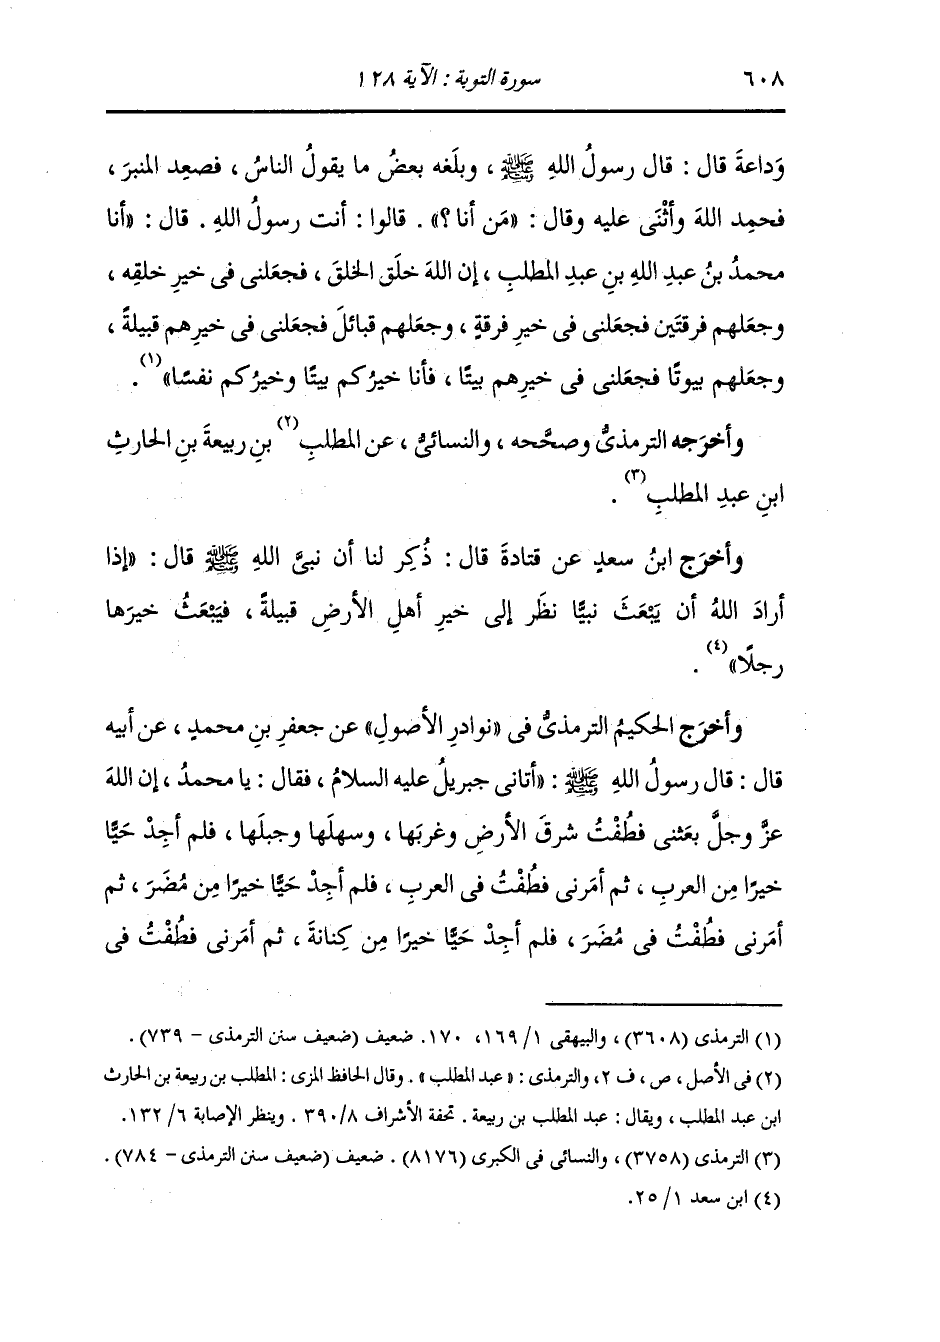 ٦٠٨ سورة التوبة : الآية ١٢٨
وَداعةَ قال : قال رسولُ اللهِ ﷺ ، وبلَغه بعضُ ما يقولُ الناسُ ، فصعِد المنبرَ ،
فحمِد اللهَ وأثْنَى عليه وقال : «مَن أنا ؟» . قالوا : أنت رسولُ اللهِ . قال : «أنا
محمدُ بنُ عبدِ اللهِ بنِ عبدِ المطلبِ ، إن اللهَ خلَق الخلقَ ، فجعَلنى فى خيرِ خلقِه ،
وجعَلهم فرقتَين فجعَلنى فى خيرِ فرقةٍ ، وجعَلهم قبائلَ فجعَلنى فى خيرِهم قبيلةً ،
وجعَلهم بيوتًا فجعَلنى فى خيرِهم بيتًا ، فأنا خيرُكم بيتًا وخيرُكم نفسًا»(١) .
وأخرَجه الترمذىُّ وصحَّحه ، والنسائىُّ ، عن المطلبِ(٢) بنِ ربيعةَ بنِ الحارثِ
ابنِ عبدِ المطلبِ(٣) .
وأخرَج ابنُ سعدٍ عن قتادةَ قال : ذُكِر لنا أن نبىَّ اللهِ ﷺ قال : «إذا
أرادَ اللهُ أن يَبْعَثَ نبيًّا نظَر إلى خيرِ أهلِ الأرضِ قبيلةً ، فيَبْعَثُ خيرَها
رجلًا»(٤) .
وأخرَج الحكيمُ الترمذىُّ فى «نوادرِ الأصولِ» عن جعفرِ بنِ محمدٍ ، عن أبيه
قال : قال رسولُ اللهِ ﷺ : «أتانى جبريلُ عليه السلامُ ، فقال : يا محمدُ ، إن اللهَ
عزَّ وجلَّ بعَثنى فطُفْتُ شرقَ الأرضِ وغربَها ، وسهلَها وجبلَها ، فلم أجِدْ حَيًّا
خيرًا مِن العربِ ، ثم أمَرنى فطُفْتُ فى العربِ ، فلم أجِدْ حَيًّا خيرًا مِن مُضَرَ ، ثم
أمَرنى فطُفْتُ فى مُضَرَ ، فلم أجِدْ حَيًّا خيرًا مِن كِنانةَ ، ثم أمَرنى فطُفْتُ فى
(١) الترمذى (٣٦٠٨) ، والبيهقى ١/ ١٦٩، ١٧٠. ضعيف (ضعيف سنن الترمذى – ٧٣٩) .
(٢) فى الأصل ، ص ، ف ٢، والترمذى : « عبد المطلب » . وقال الحافظ المزى : المطلب بن ربيعة بن الحارث
ابن عبد المطلب ، ويقال : عبد المطلب بن ربيعة . تحفة الأشراف ٨/ ٣٩٠ . وينظر الإصابة ٦/ ١٣٢.
(٣) الترمذى (٣٧٥٨) ، والنسائى فى الكبرى (٨١٧٦) . ضعيف (ضعيف سنن الترمذى – ٧٨٤) .
(٤) ابن سعد ١/ ٢٥.